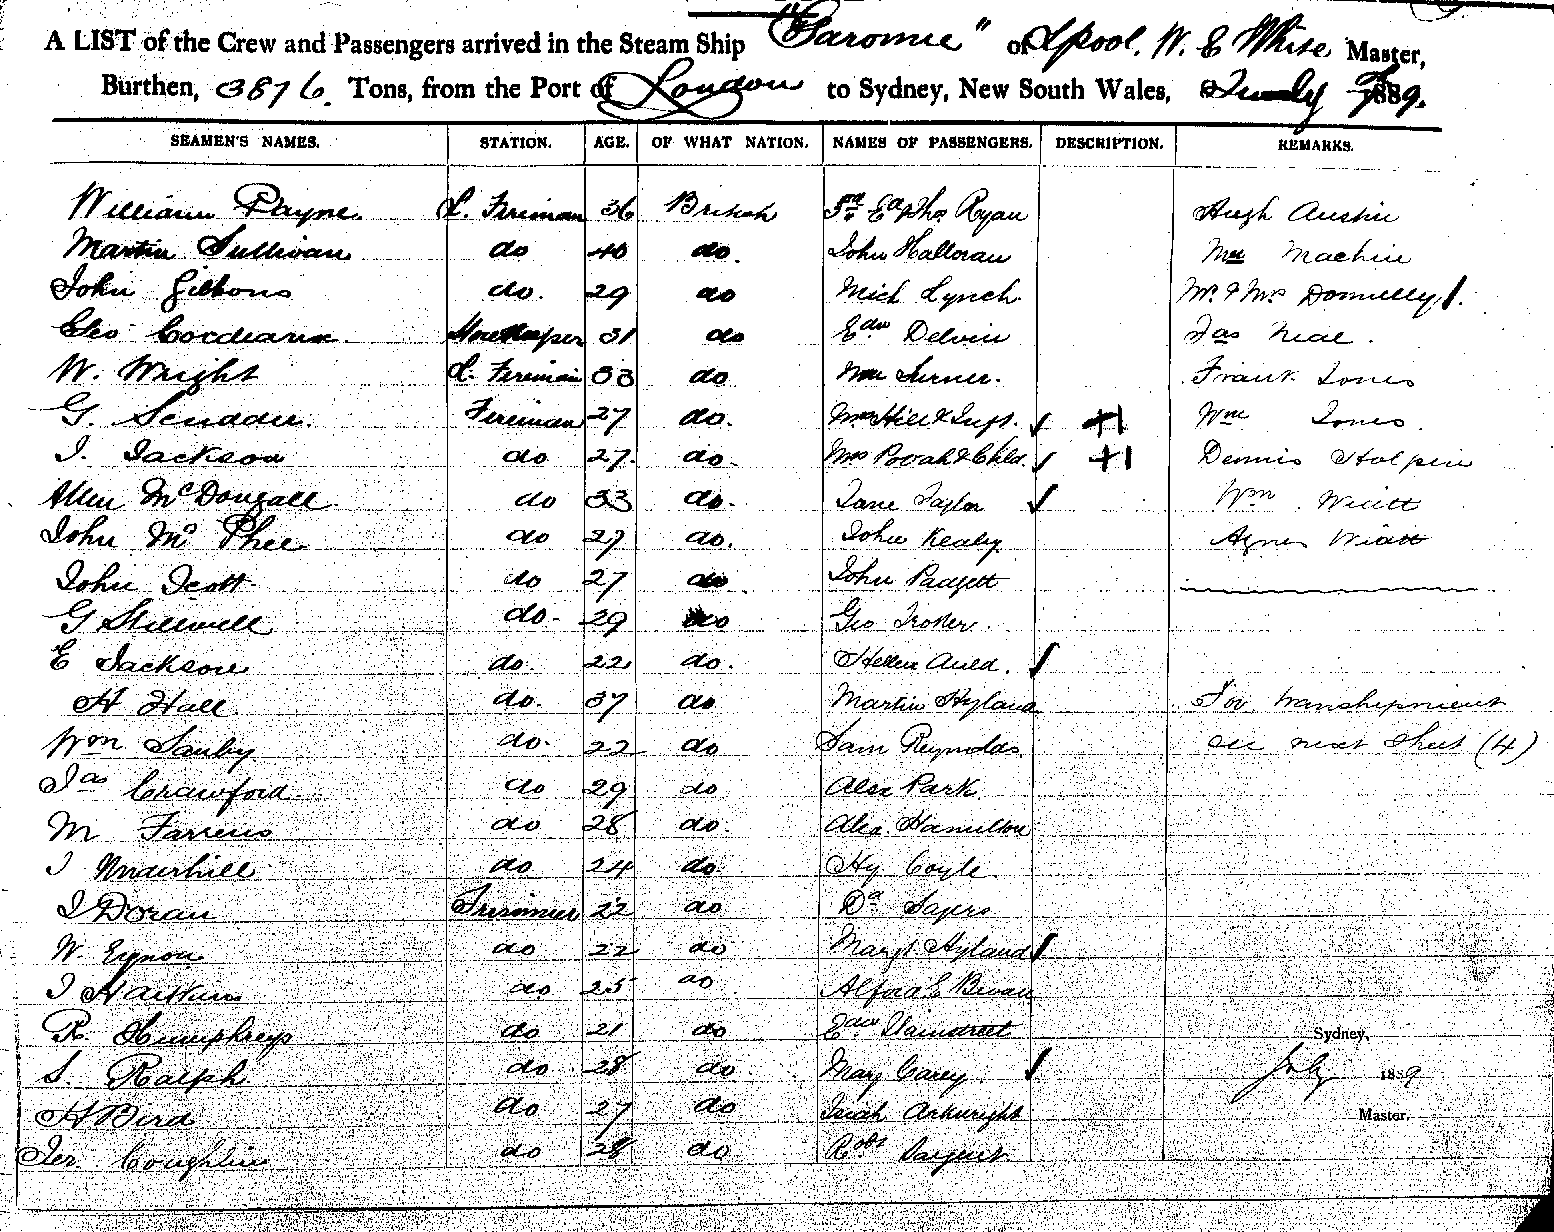 A LIST of the Crew and Passengers arrived in the Steam Ship "Garonne" of Lpool. W. E White Master,
Burthen, 3876 Tons, from the Port of London to Sydney, New South Wales, 1889.
SEAMEN'S NAMES. STATION. AGE. OF WHAT NATION. NAMES OF PASSENGERS. DESCRIPTION. REMARKS.
William Payne. L. Fireman 36 British Ryan Hugh Austin
Martin Sullivan do 40 do. John Halloran Machin
John Gibbons do. 29 do Mich Lynch Mr & Mrs Donnelly
Geo 31 do Edw Delvin Jas Neal.
W. Wright L. Fireman 33 do Wm Turner. Frank Jones
G. Scudder. Fireman 27 do. Mrs Hill & Inft. +1 Wm Jones.
J. Jackson do 27. do. Mrs Povah & Chld. +1 Dennis Holpin
Allen McDougall do 33 do. Jane Taylor Wm Wiatt
John Mc Phee do 27 do. John Kealy Agnes Wiatt
John Scott do 27 do John Padgett
G Stillwell do. 29 do Geo Troker.
E Jackson do. 22 do. Hellen Auld.
H Hall do. 37 do Martin Hyland For transhipment
Wm Sanby do. 22 do Sam Reynolds see next sheet (4)
Jas Crawford do 29 do Alex Park
M Farrens do 28 do. Alex. Hamilton
J Underhill do 24 do. Hy Coyle
J Doran Trimmer 22 do Dd Sayers
W. Eynon do 22 do Margt Hyland
J Hawkins do 25 do Alfred E Bevan
R. Humphreys do 21 do Edw Sydney,
S. Ralph do 28 do. Mary Carey July 1889
H Bird do 27 do Isiah Arkwright Master.
Jer. Coughlin do 28 do Robt Sargent